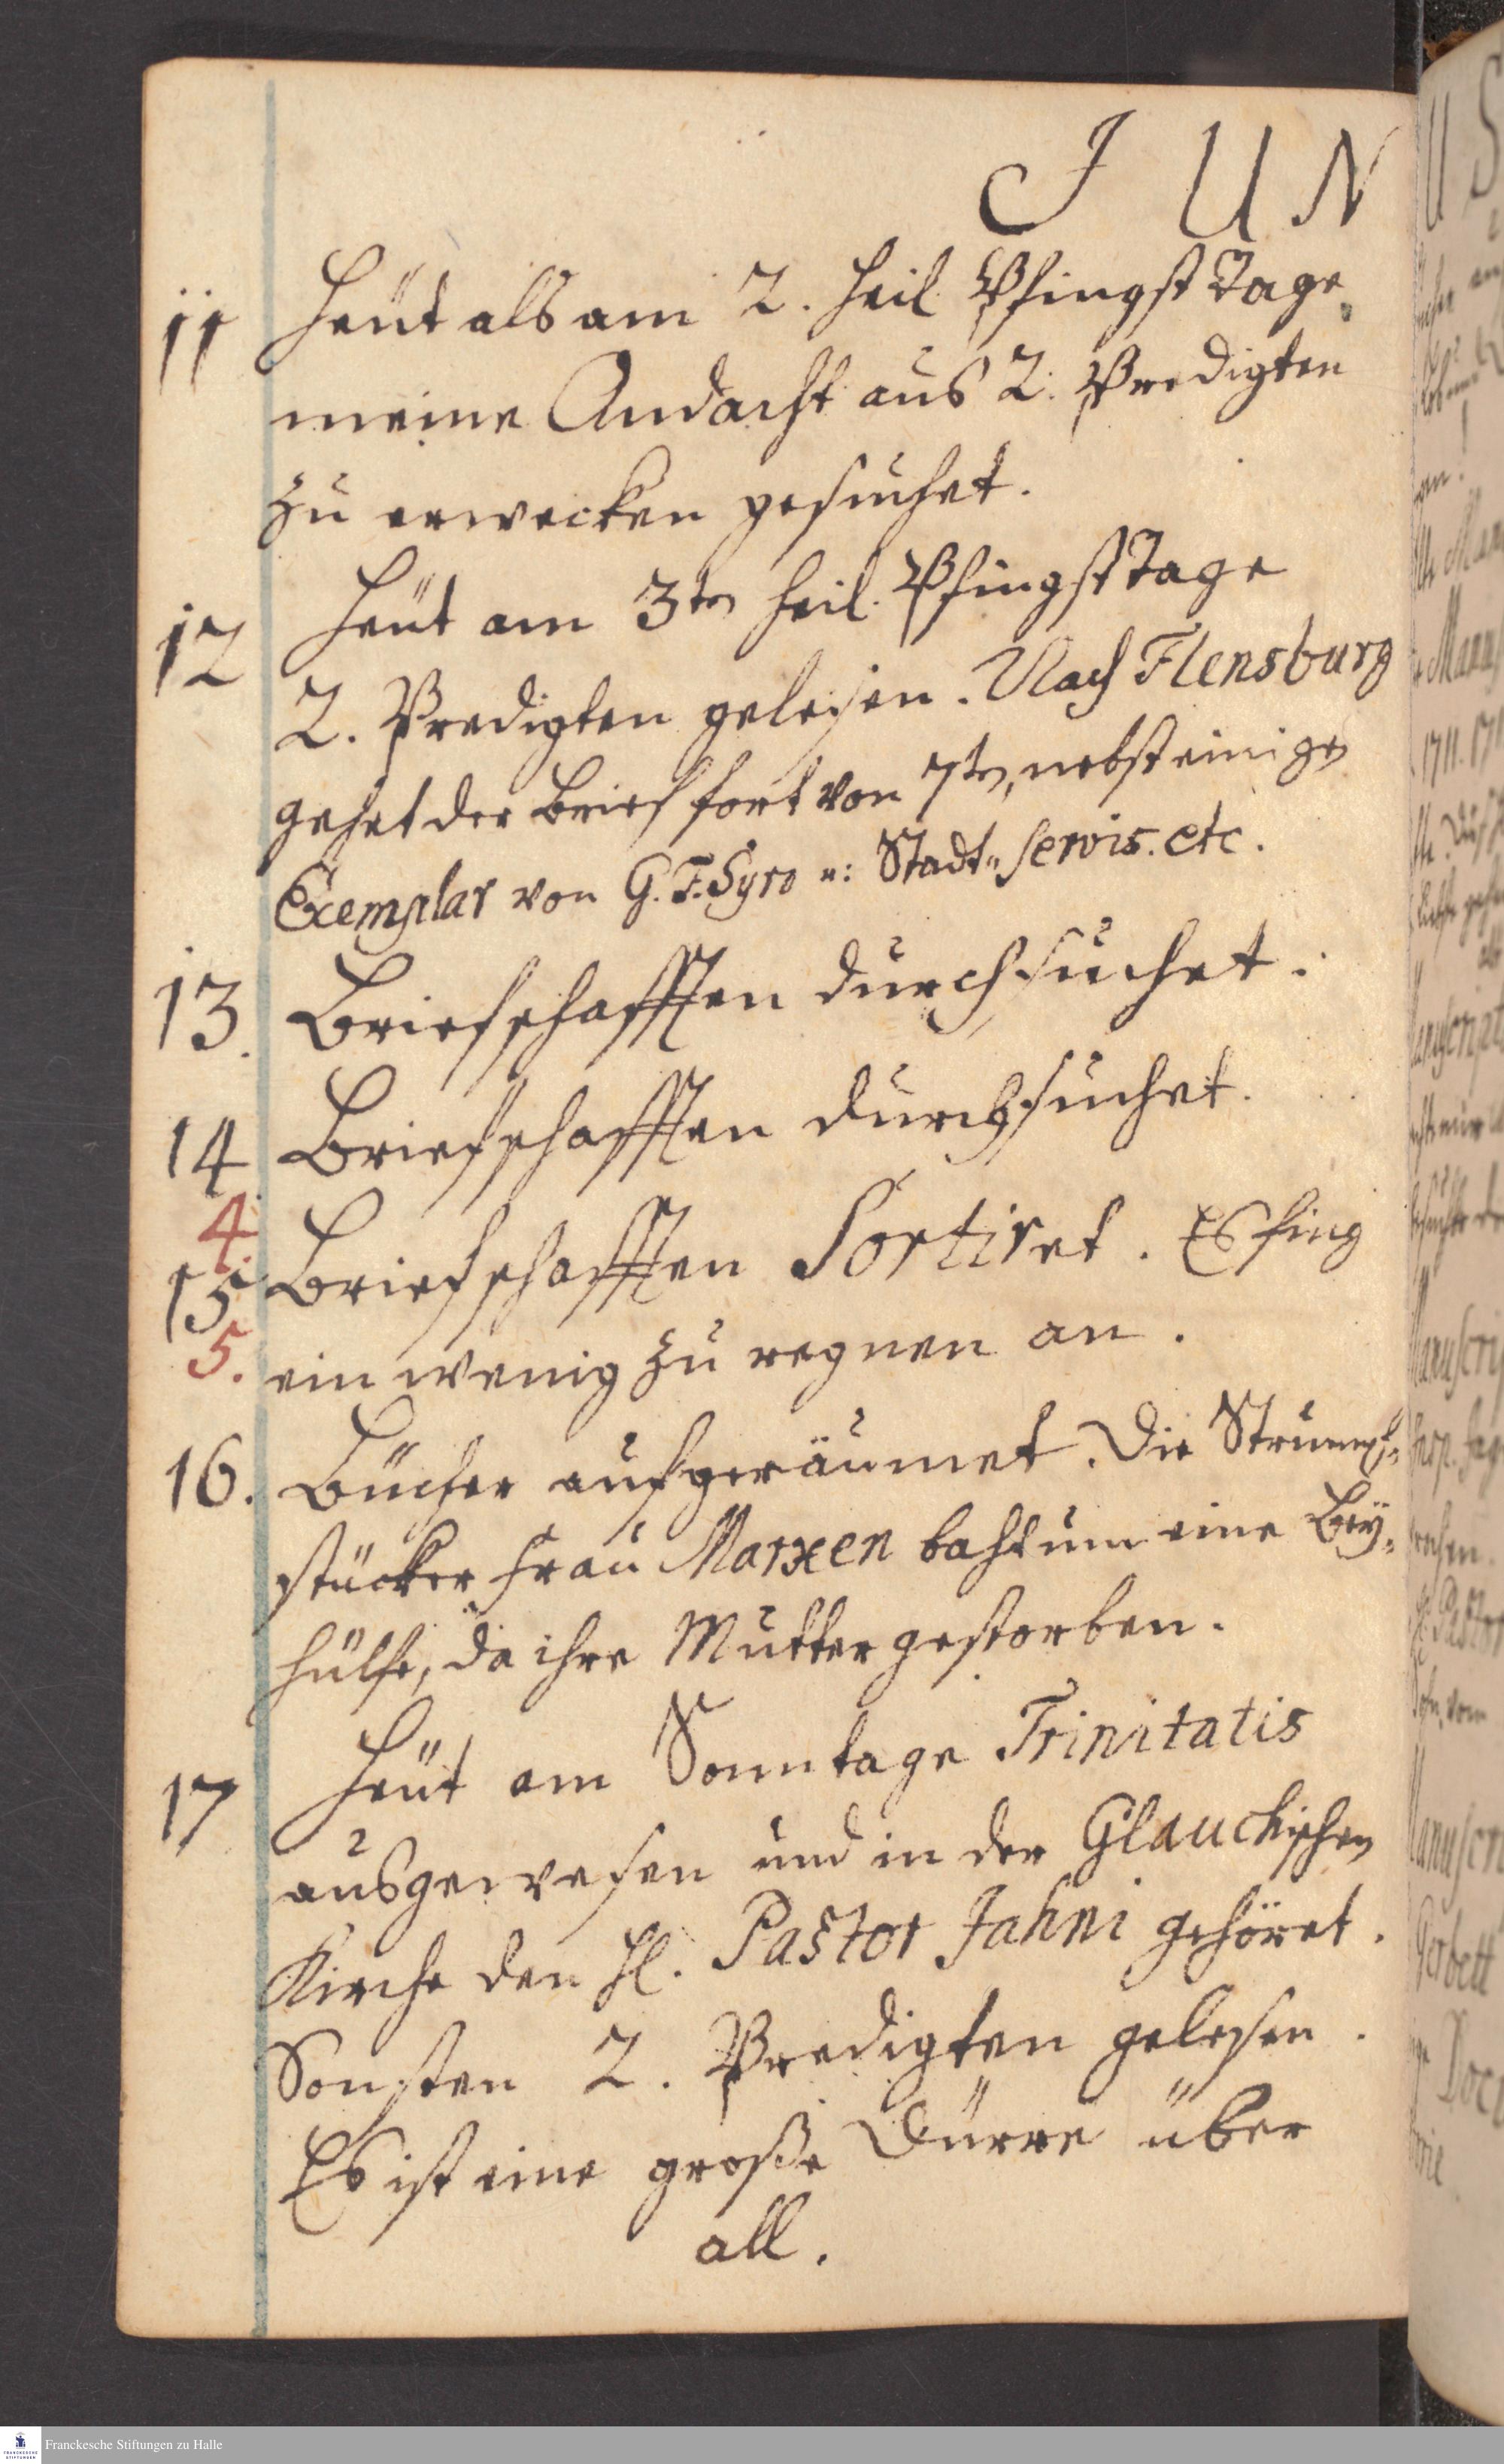 J U N
11 Heut als am 2. heil Pfingst Tage,
meine Andacht aus 2. Predigten
zu erwecken gesuchet.
12 Heut am 3ten heil. Pfingst Tage
2. Predigten gelesen. Nach Flensburg
gehet der Brief fort von 7ten, nebst einigen
Exemplar von G. F. Syro u: Stadt„ servis. etc.
13. Briefschafften durchsuchet.
14 Briefschafften durchsuchet.
4.
15 Briefschafften Sortiret. Es fing
5. ein wenig zu regnen an.
16. Bücher aufgeräumet. Die Strumpf„
stücker Frau Marxen baht um eine Bey„
hülfe, da ihre Mutter gestorben.
17 Heut am Sonntage Trinitatis
ausgewesen und in der Glauchischen
Kirche den H. Pastor Jahni gehöret.
Sonsten 2. Predigten gelesen.
Es ist eine große Dürre über
all.
Franckesche Stiftungen zu Halle